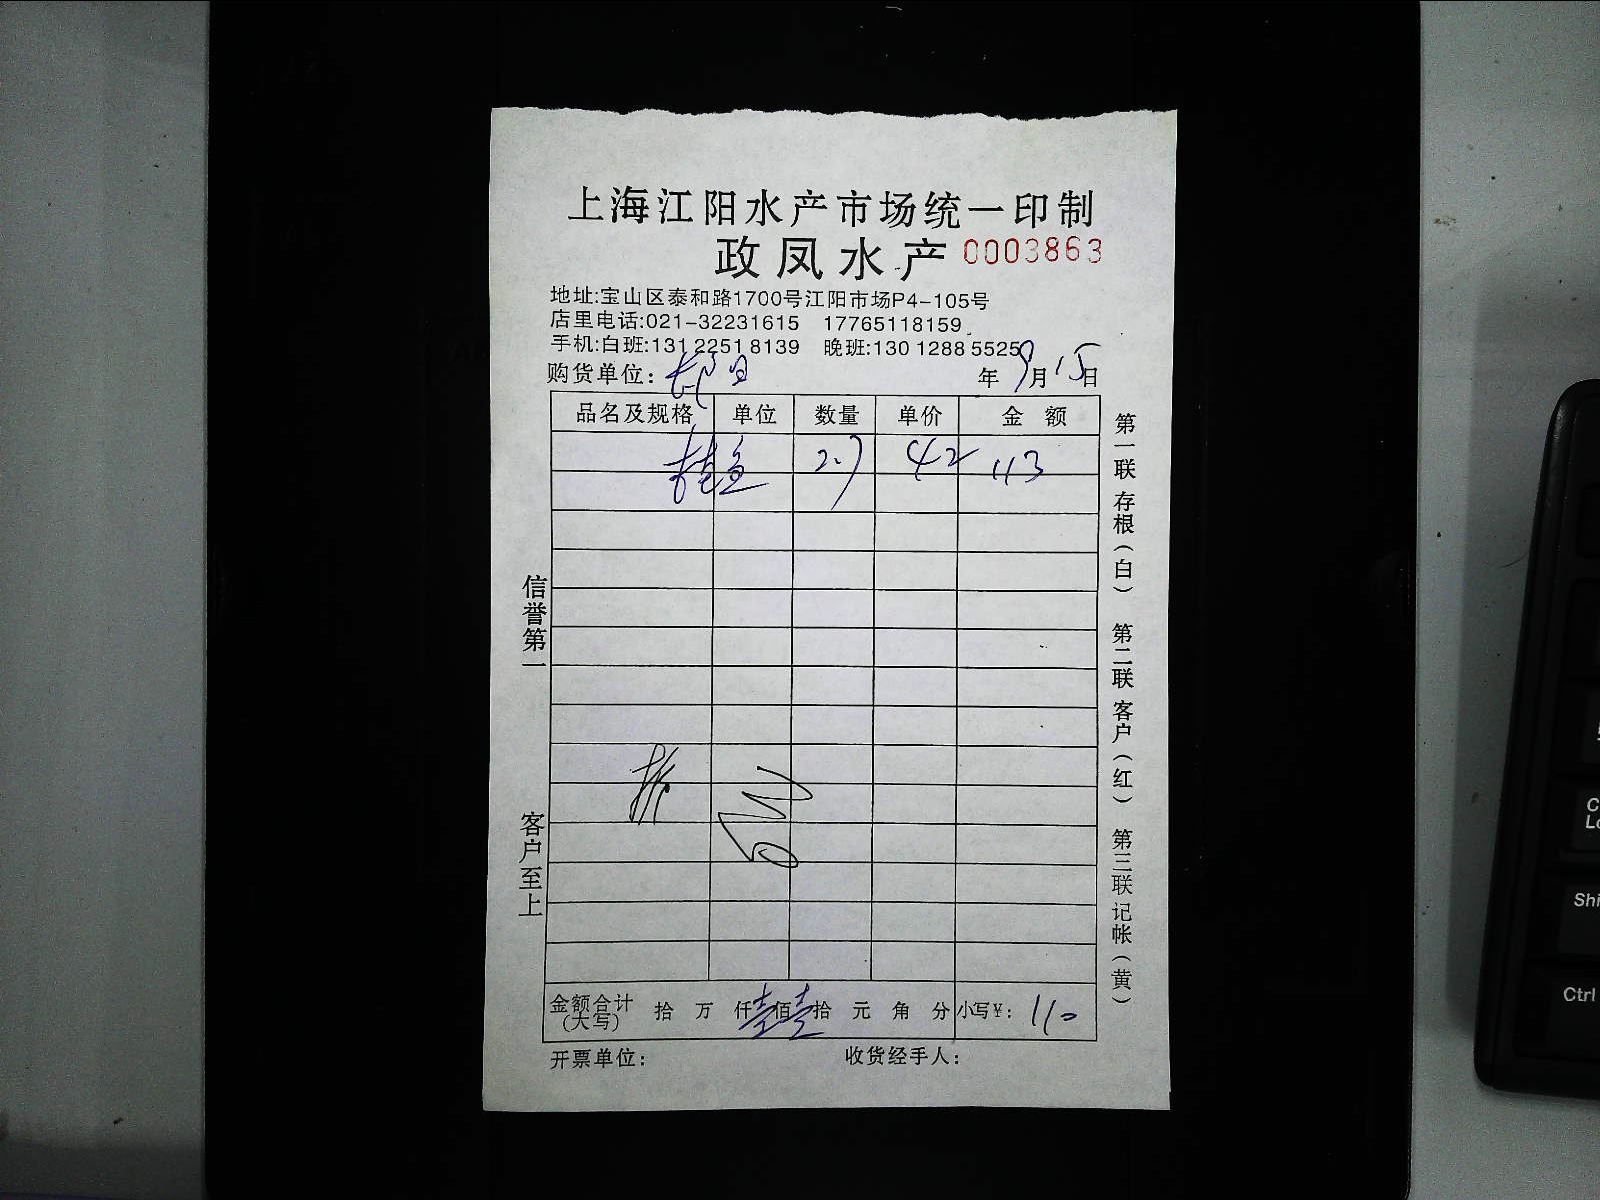 上海江阳水产市场统一印制
政凤水产 0003863
地址:宝山区泰和路1700号江阳市场P4-105号
店里电话:021-32231615 17765118159
手机:白班:131 2251 8139 晚班:130 1288 5525
购货单位: 年 9月15日
品名及规格 单位 数量 单价 金 额
桂鱼 2.7 42 113
金额合计(大写) 拾 万 仟壹佰壹拾 元 角 分 小写¥: 110
开票单位: 收货经手人:
信誉第一 客户至上
第一联 存根(白) 第二联 客户(红) 第三联 记帐(黄)
C
Lo
Shi
Ctrl